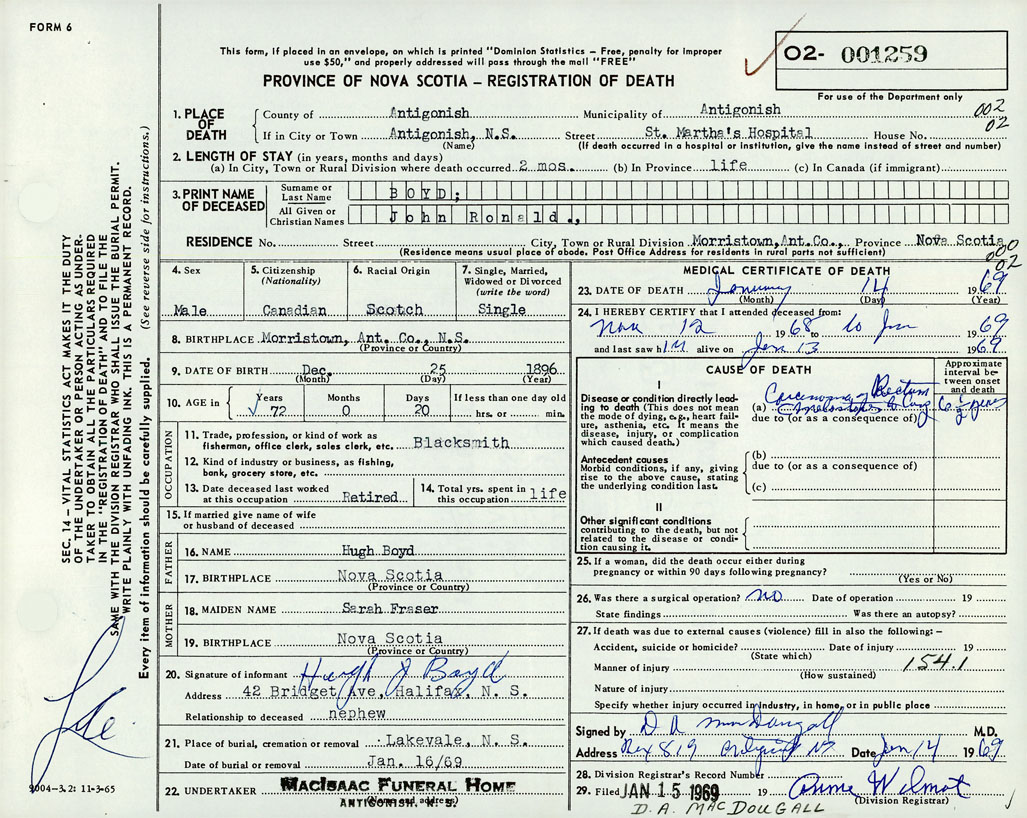 FORM 6
This form, if placed in an envelope, on which is printed "Dominion Statistics – Free, penalty for improper
use $50," and properly addressed will pass through the mail "FREE"
O2- 001259
PROVINCE OF NOVA SCOTIA – REGISTRATION OF DEATH
For use of the Department only
002
02
1. PLACE OF DEATH
County of Antigonish Municipality of Antigonish
If in City or Town Antigonish, N.S. Street St. Martha's Hospital House No.
(Name) (If death occurred in a hospital or institution, give the name instead of street and number)
2. LENGTH OF STAY (in years, months and days)
(a) In City, Town or Rural Division where death occurred 2 mos. (b) In Province life (c) In Canada (if immigrant)
3. PRINT NAME OF DECEASED
Surname or Last Name BOYD;
All Given or Christian Names John Ronald.,
RESIDENCE No. Street City, Town or Rural Division Morristown, Ant. Co., Province Nova Scotia
(Residence means usual place of abode. Post Office Address for residents in rural parts not sufficient)
000
02
4. Sex
Male
5. Citizenship
(Nationality)
Canadian
6. Racial Origin
Scotch
7. Single, Married,
Widowed or Divorced
(write the word)
Single
8. BIRTHPLACE Morristown, Ant. Co., N.S.
(Province or Country)
9. DATE OF BIRTH Dec. 25 1896
(Month) (Day) (Year)
10. AGE in Years Months Days If less than one day old
72 0 20 hrs. or min.
OCCUPATION
11. Trade, profession, or kind of work as
fisherman, office clerk, sales clerk, etc. Blacksmith
12. Kind of industry or business, as fishing,
bank, grocery store, etc.
13. Date deceased last worked
at this occupation Retired
14. Total yrs. spent in
this occupation life
15. If married give name of wife
or husband of deceased
FATHER
16. NAME Hugh Boyd
17. BIRTHPLACE Nova Scotia
(Province or Country)
MOTHER
18. MAIDEN NAME Sarah Fraser
19. BIRTHPLACE Nova Scotia
(Province or Country)
20. Signature of informant Hugh J Boyd
Address 42 Bridget Ave, Halifax, N. S.
Relationship to deceased nephew
21. Place of burial, cremation or removal Lakevale, N. S.
Date of burial or removal Jan. 16/69
22. UNDERTAKER MacIsaac Funeral Home
(Name and address)
ANTIGONISH, N. S.
MEDICAL CERTIFICATE OF DEATH
23. DATE OF DEATH January 14 1969
(Month) (Day) (Year)
24. I HEREBY CERTIFY that I attended deceased from:
Nov 12 1968 to Jan 1969
and last saw him alive on Jan 13 1969
CAUSE OF DEATH
Approximate
interval be-
tween onset
and death
I
Disease or condition directly lead-
ing to death (This does not mean
the mode of dying, e.g., heart fail-
ure, asthenia, etc. It means the
disease, injury, or complication
which caused death.)
(a) Carcinoma of Rectum
due to (or as a consequence of)
Antecedent causes
Morbid conditions, if any, giving
rise to the above cause, stating
the underlying condition last.
(b)
due to (or as a consequence of)
(c)
II
Other significant conditions
contributing to the death, but not
related to the disease or condi-
tion causing it.
25. If a woman, did the death occur either during
pregnancy or within 90 days following pregnancy?
(Yes or No)
26. Was there a surgical operation? no Date of operation 19
State findings Was there an autopsy?
27. If death was due to external causes (violence) fill in also the following: –
Accident, suicide or homicide? Date of injury 19
(State which)
Manner of injury 154.1
(How sustained)
Nature of injury
Specify whether injury occurred in industry, in home, or in public place
Signed by D A MacDougall M.D.
Address Box 819 Antigonish NS Date Jan 14 1969
28. Division Registrar's Record Number
29. Filed JAN 15 1969 19 Anne Wilmot
(Division Registrar)
D. A. MACDOUGALL
SEC. 14 – VITAL STATISTICS ACT MAKES IT THE DUTY
OF THE UNDERTAKER OR PERSON ACTING AS UNDER-
TAKER TO OBTAIN ALL THE PARTICULARS REQUIRED
IN THE "REGISTRATION OF DEATH" AND TO FILE THE
SAME WITH THE DIVISION REGISTRAR WHO SHALL ISSUE THE BURIAL PERMIT.
WRITE PLAINLY WITH UNFADING INK. THIS IS A PERMANENT RECORD.
Every item of information should be carefully supplied. (See reverse side for instructions.)
9004-3.2: 11-3-65